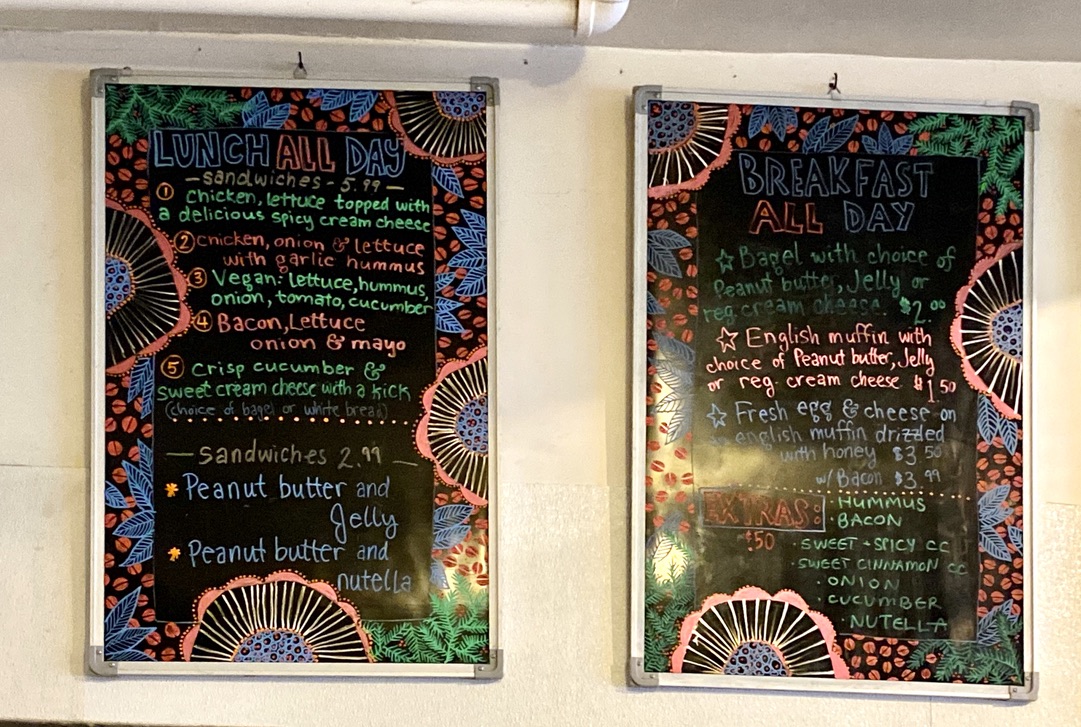 LUNCH ALL DAY
—sandwiches - 5.99—
① Chicken, lettuce topped with
a delicious spicy cream cheese
② chicken, onion & lettuce
with garlic hummus
③ Vegan: lettuce, hummus,
onion, tomato, cucumber
④ Bacon, Lettuce
onion & mayo
⑤ Crisp cucumber &
sweet cream cheese with a kick
(choice of bagel or white bread)
— Sandwiches 2.99 —
* Peanut butter and
Jelly
* Peanut butter and
nutella
BREAKFAST
ALL DAY
☆ Bagel with choice of
Peanut butter, Jelly or
reg. cream cheese. $2.00
☆ English muffin with
choice of Peanut butter, Jelly
or reg. cream cheese $1.50
☆ Fresh egg & cheese on
english muffin drizzled
with honey $3.50
w/ Bacon $3.99
EXTRAS:
$.50
· HUMMUS
· BACON
· SWEET + SPICY CC
· SWEET CINNAMON CC
· ONION
· CUCUMBER
· NUTELLA